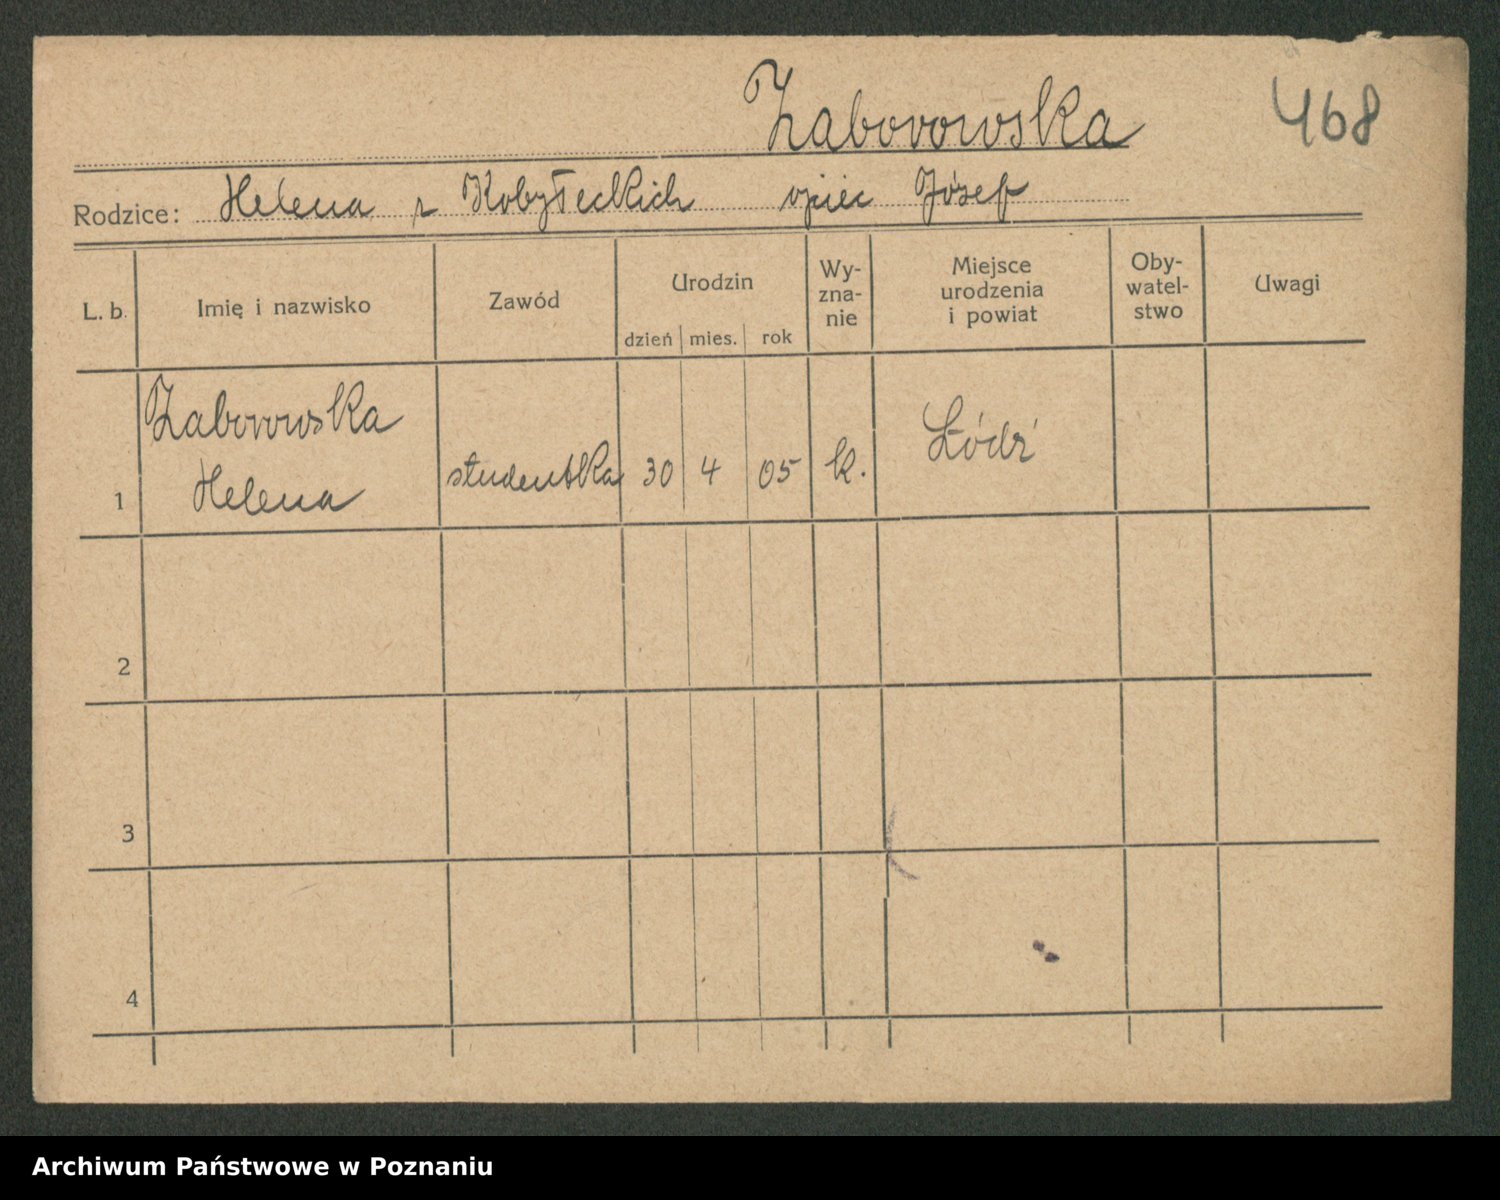 Zaborowska
468
Rodzice: Helena z Kobyłeckich ojciec Józef
L. b. Imię i nazwisko Zawód Urodzin dzień mies. rok Wy-zna-nie Miejsce urodzenia i powiat Oby-watel-stwo Uwagi
Zaborowska
1 Helena studentka 30 4 05 k. Łódź
2
3
4
Archiwum Państwowe w Poznaniu